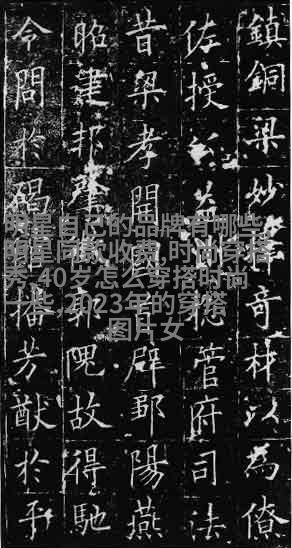 鎮銅梁妙擇奇材以為僚
佐授公益州總管府司法
昔梁孝開國首辟鄒陽燕
昭建邦肇徵郭隗故得馳
令問於碣館播芳猷於平
明星自己的品牌有哪些,
明星同款收费,时尚穿搭
秀,40岁怎么穿搭时尚
一些,2023年的穿搭
图片女